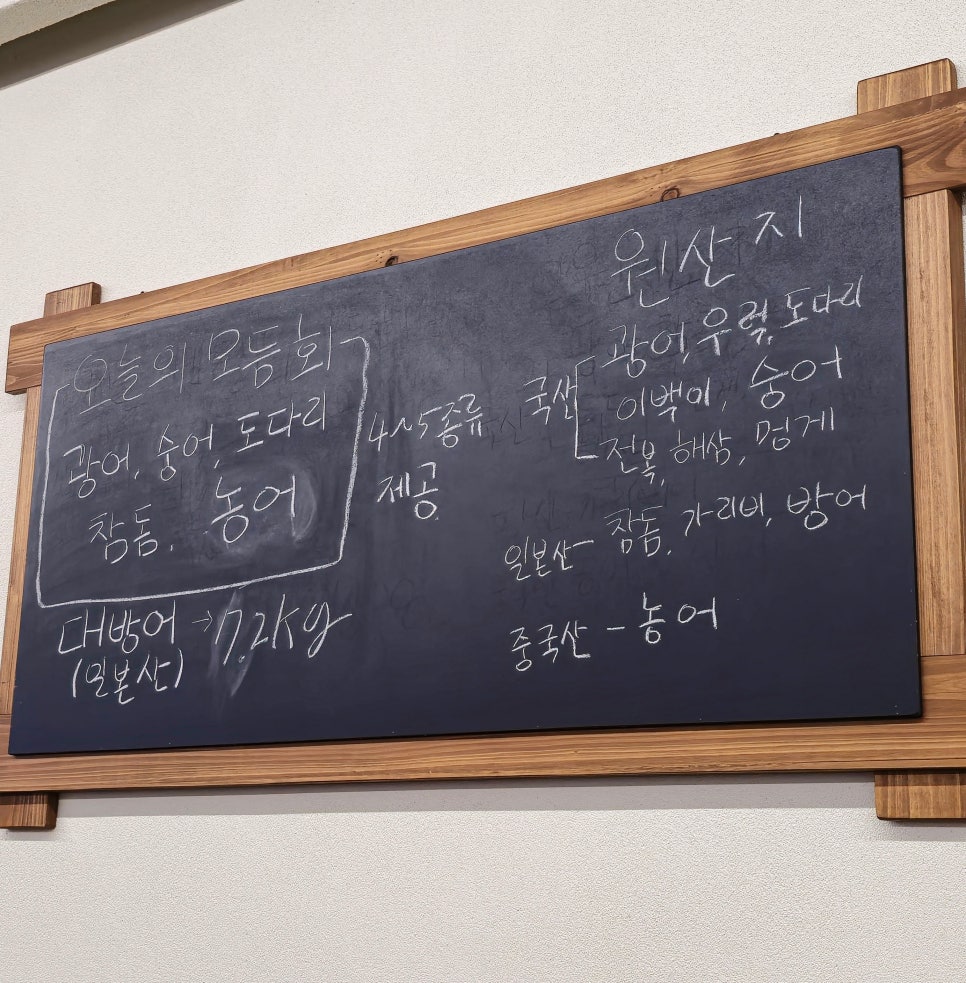 오늘의 모듬회
광어, 숭어, 도다리
참돔, 농어
4~5종류
제공
대방어 → 7.2kg
(일본산)
원산지
국산 광어, 우럭, 도다리
이백이, 숭어
전복, 해삼, 멍게
일본산 - 참돔, 가리비, 방어
중국산 - 농어